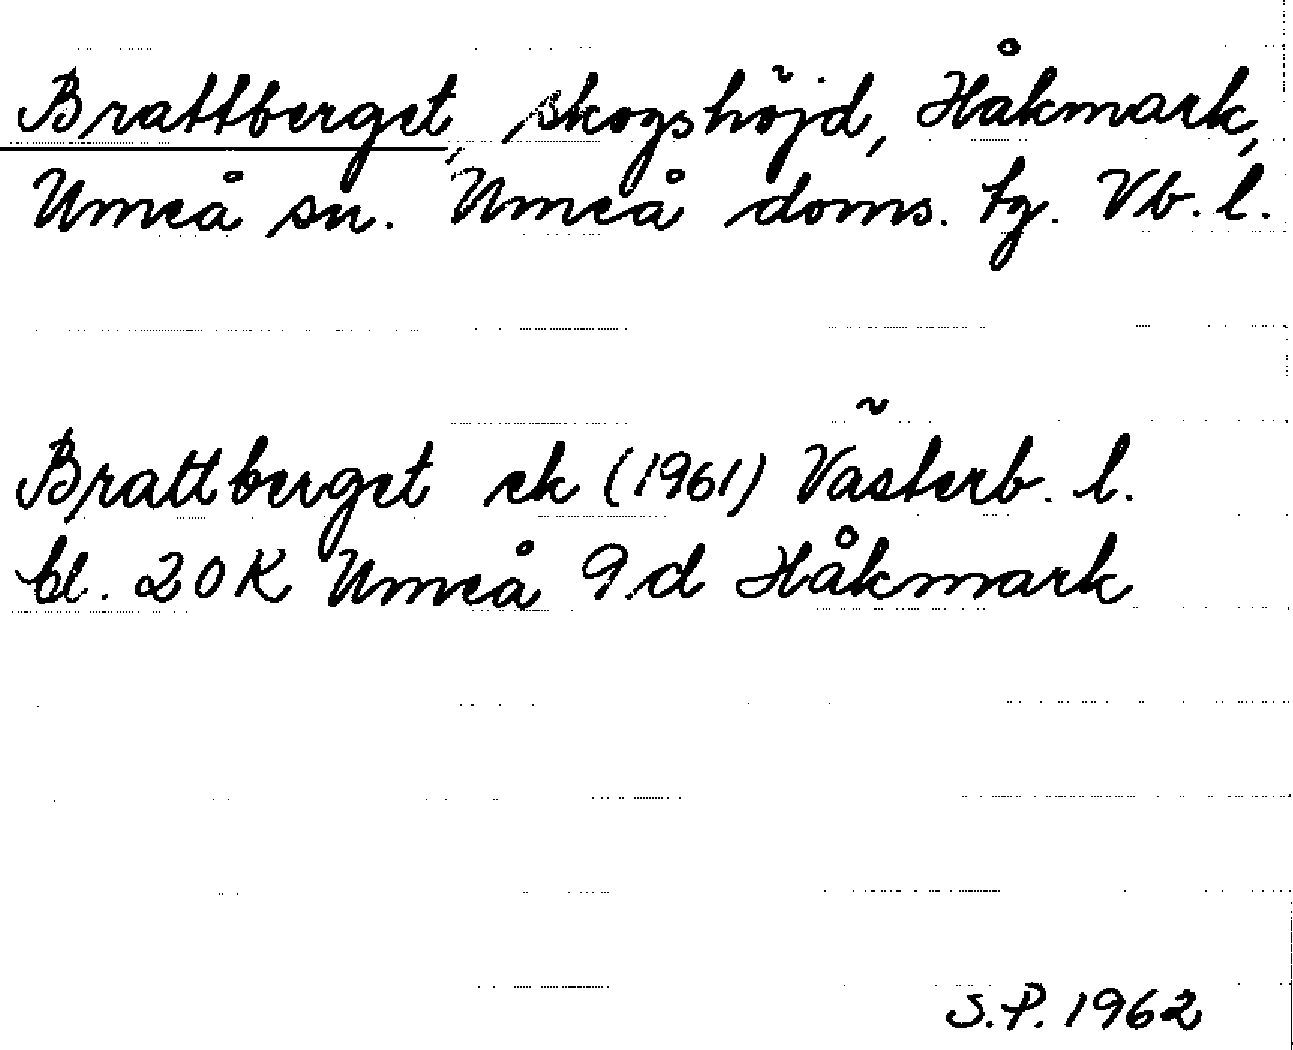 Brattberget, skogshöjd, Håkmark,
Umeå sn. Umeå doms. tg. Vb. l.
Brattberget ek (1961) Västerb. l.
bl. 20 K Umeå 9.d Håkmark
S.P. 1962